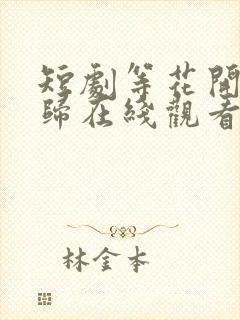 短劇等花開
歸在綫觀看
林金本